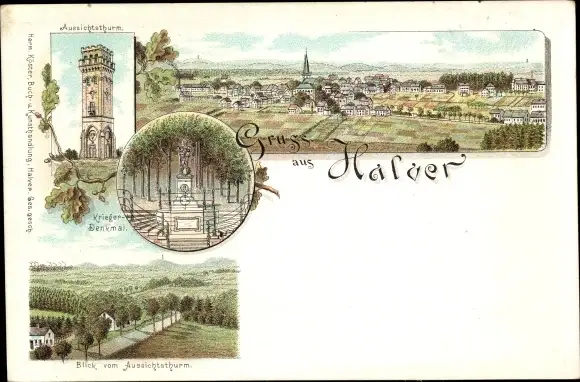 Aussichtsthurm.
Gruss
aus
Halver
Krieger-
Denkmal.
Blick vom Aussichtsthurm.
Herm. Köster, Buch- u. Kunsthandlung, Halver. Ges. gesch.